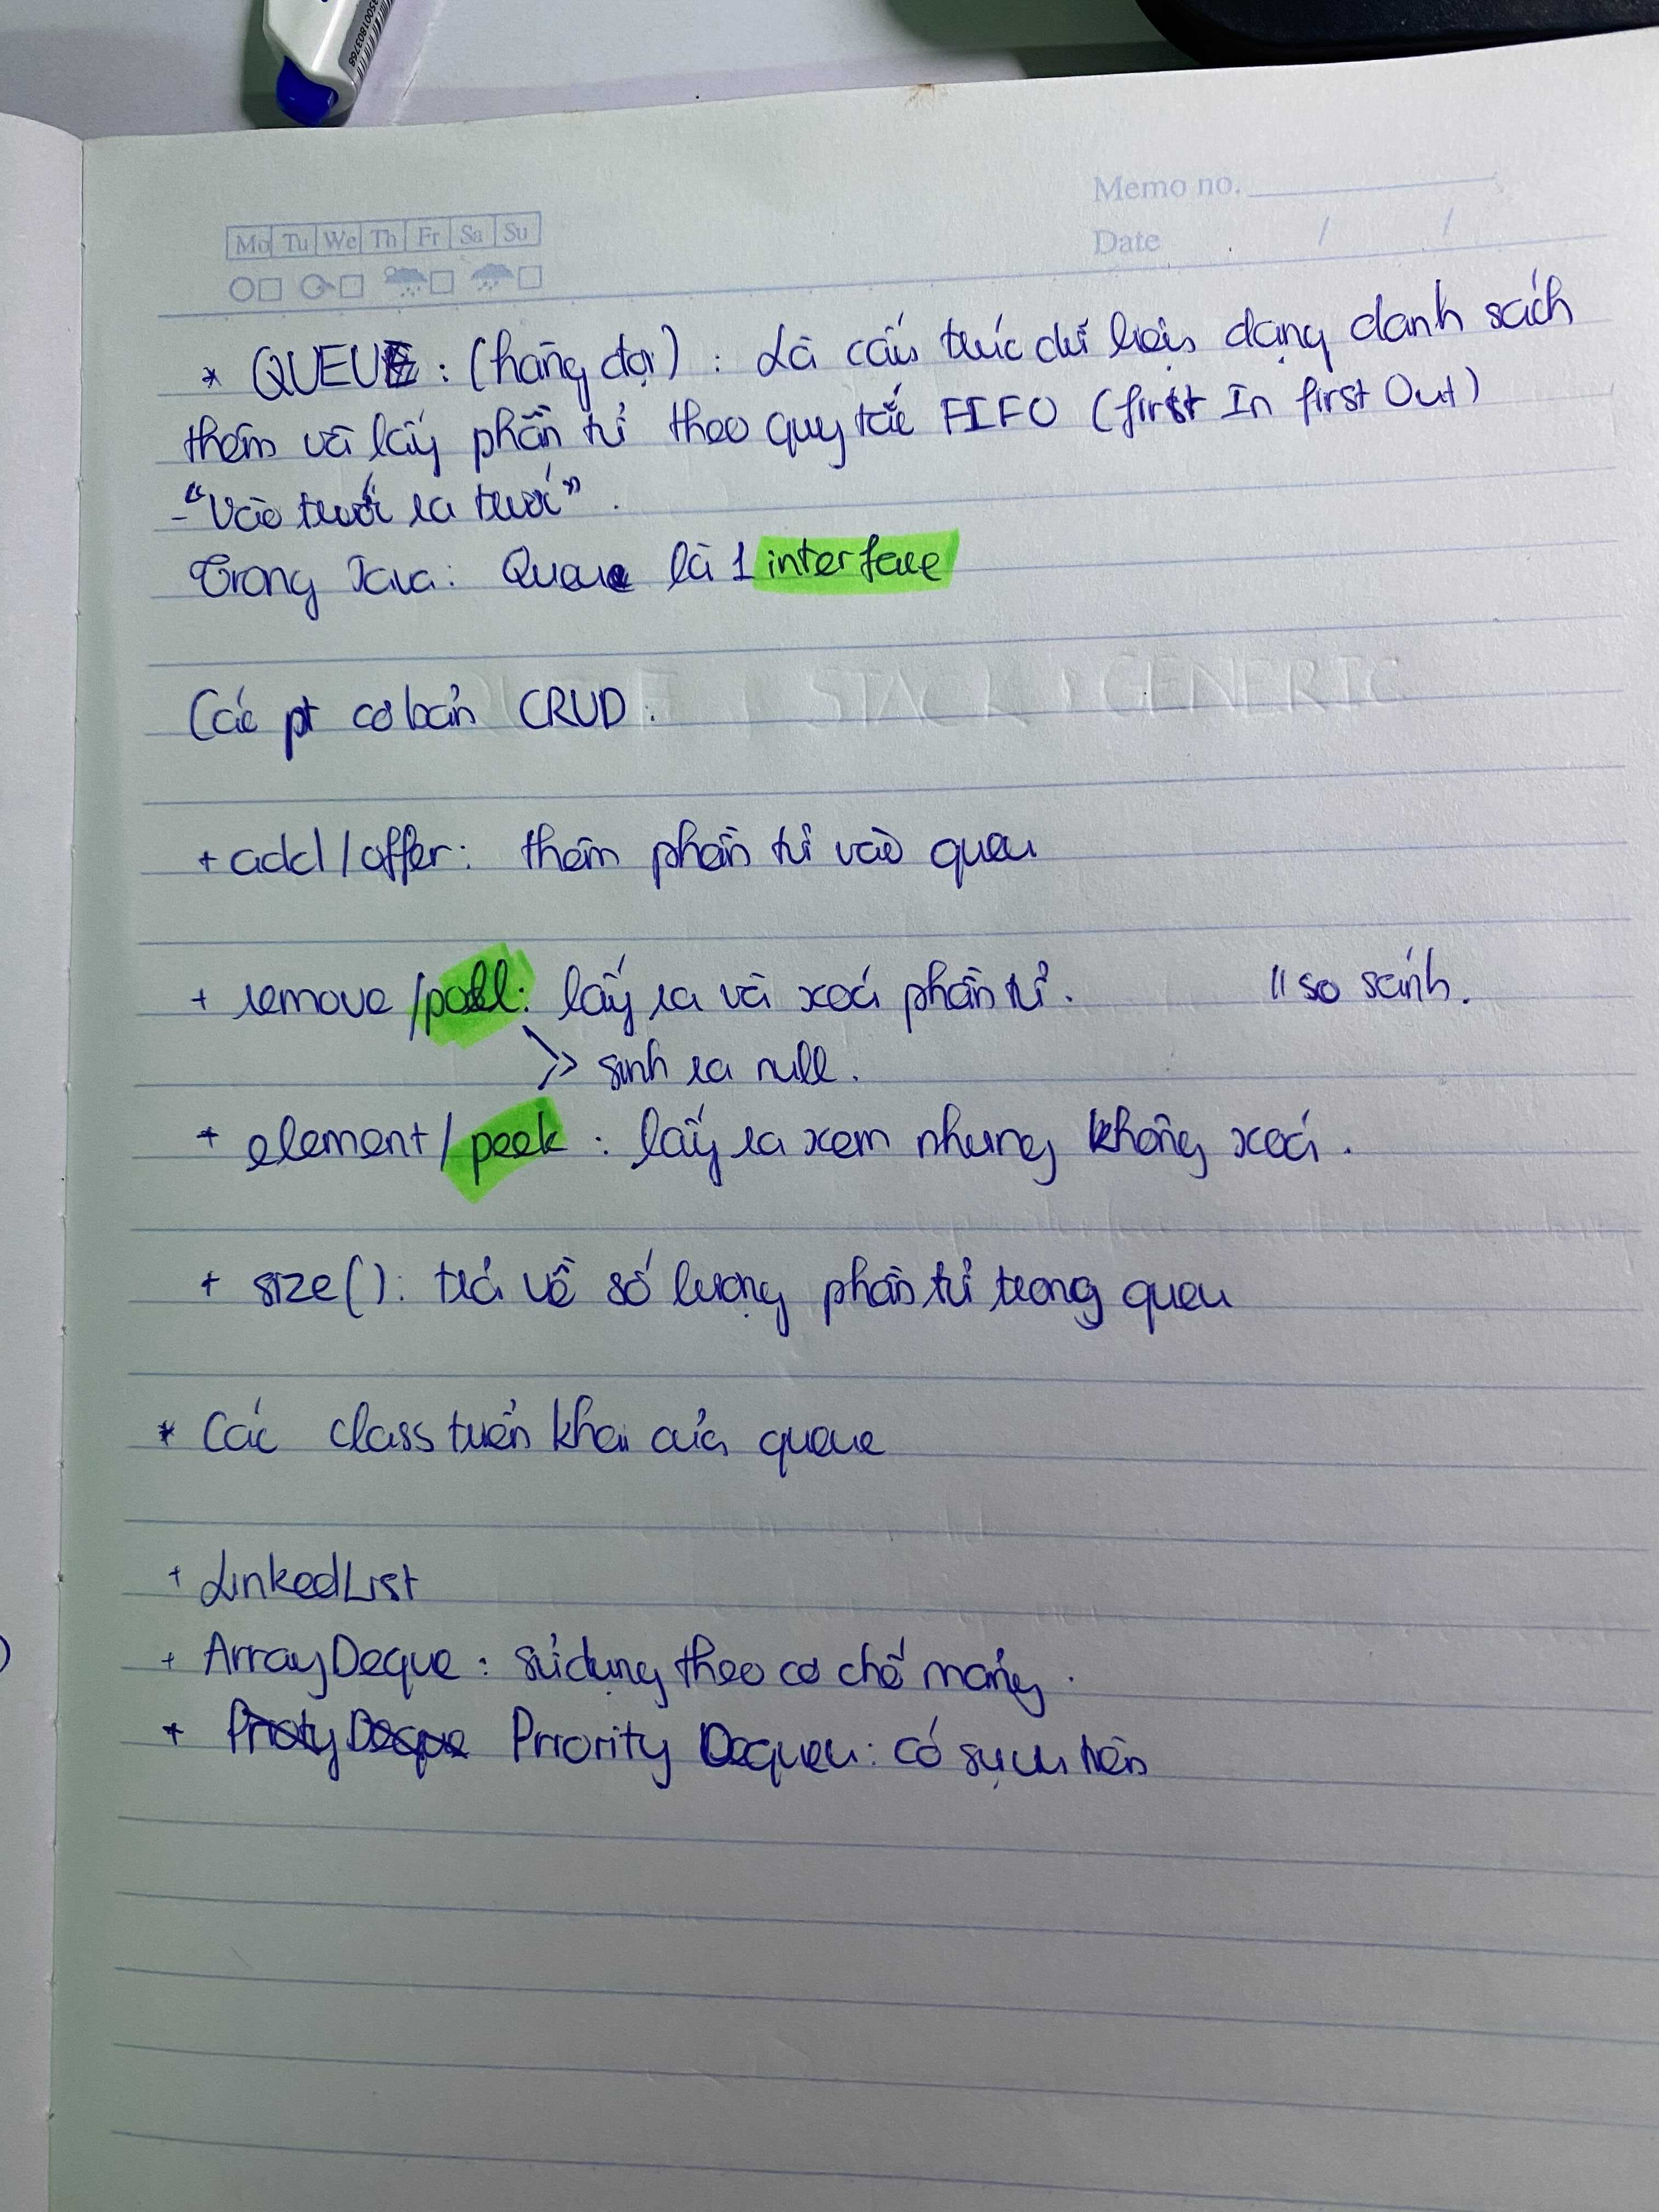 35001803768
Memo no.
Mo Tu We Th Fr Sa Su
Date / /
* QUEUE: (hàng đợi) : Là cấu trúc dữ liệu dạng danh sách
thêm và lấy phần tử theo quy tắc FIFO (first In first Out)
- "Vào trước ra trước".
Trong Java: Queue là 1 interface
QUEUE, STACK, GENERIC
Các pt cơ bản CRUD:
+ add/offer: thêm phần tử vào queu
+ remove/poll: lấy ra và xoá phần tử. // so sánh.
>> sinh ra null.
+ element/peek : lấy ra xem nhưng không xoá.
+ size(): trả về số lượng phần tử trong queu
* Các class triển khai của queue
+ LinkedList
+ ArrayDeque : sử dụng theo cơ chế mảng.
+ Priority Dequeu: có sự ưu tiên